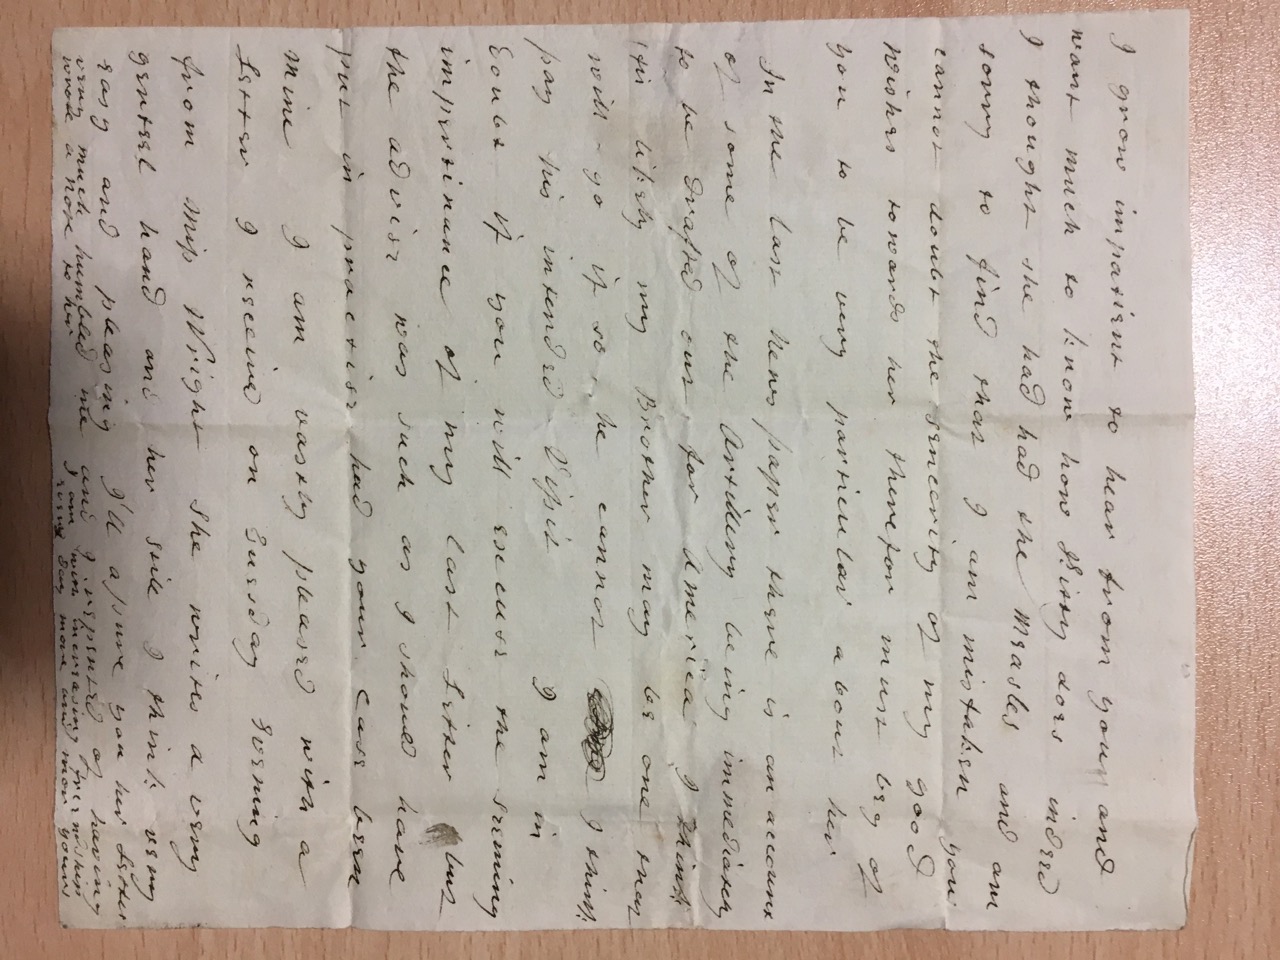 I grow impatient to hear from you and
want much to know how Kitty does indeed
I thought she had had the Measles and am
sorry to find that I am mistaken you
cannot doubt the sencerity of my good
wishes towards her therefor must beg of
you to be very particular about her
In the last News paper there is an account
of some of the Artillery being immediately
to be drafted out for America I think
its likely my Brother may be one that
will go if so he cannot I think
pay his intended Vissit I am in
doubt if you will excuse the seeming
impertinance of my last Letter but
the advise was such as I should have
put in practise had your case been
mine I am vastly pleased with a
Letter I received on Tuesday Evening
from Miss Wright She writes a very
genteel hand and her stile I think very
easy and pleasing I'll assure you her Letter
very much humbled me and I repented of having
wrote a Note to her I am with increasing freendship
every day more and mor yours